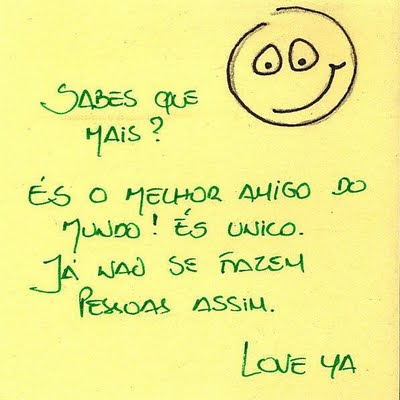 SABES QUE
MAIS?
ÉS O MELHOR AMIGO DO
MUNDO! ÉS UNICO.
JÁ NAO SE FAZEM
PESSOAS ASSIM.
LOVE YA